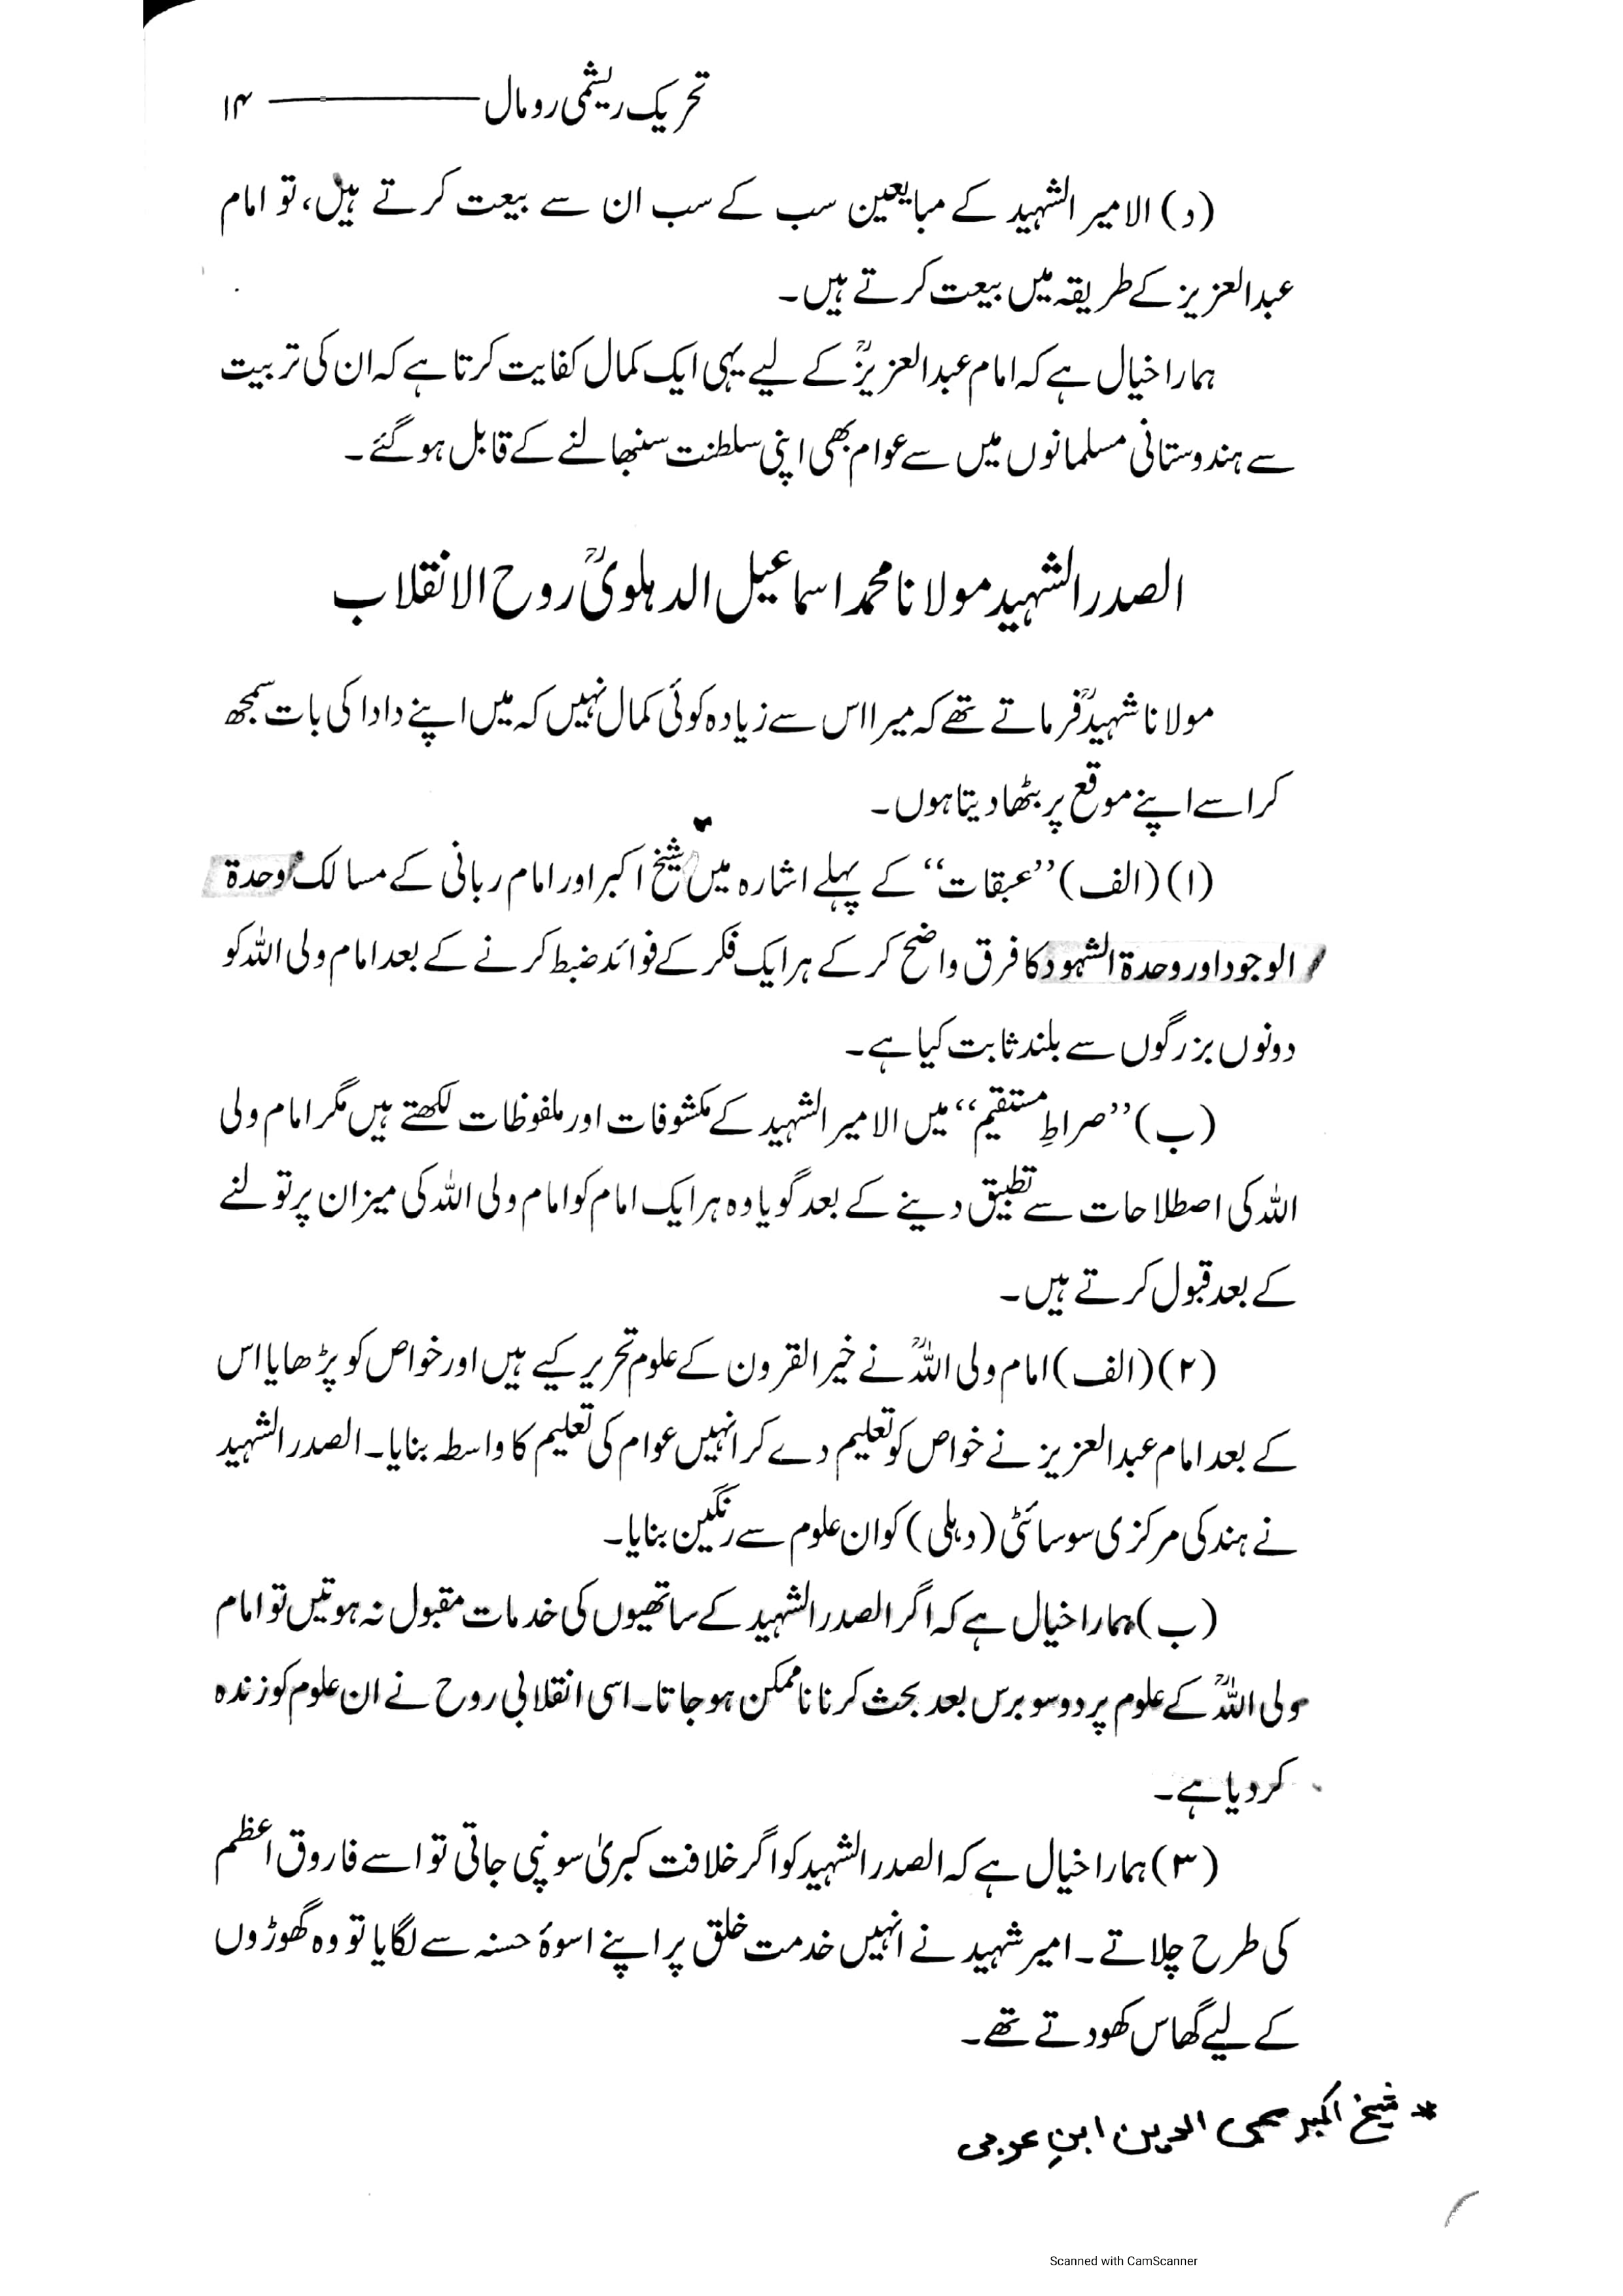 تحریک ریشمی رومال ——— ۱۴
(د) الامیر الشہید کے مبایعین سب کے سب ان سے بیعت کرتے ہیں، تو امام
عبدالعزیز کے طریقہ میں بیعت کرتے ہیں۔
ہمارا خیال ہے کہ امام عبدالعزیزؒ کے لیے یہی ایک کمال کفایت کرتا ہے کہ ان کی تربیت
سے ہندوستانی مسلمانوں میں سے عوام بھی اپنی سلطنت سنبھالنے کے قابل ہو گئے۔
الصدر الشہید مولانا محمد اسماعیل الدہلویؒ روح الانقلاب
مولانا شہیدؒ فرماتے تھے کہ میرا اس سے زیادہ کوئی کمال نہیں کہ میں اپنے دادا کی بات سمجھ
کر اسے اپنے موقع پر بٹھا دیتا ہوں۔
(۱) (الف) ”عبقات“ کے پہلے اشارہ میں شیخ اکبر اور امام ربانی کے مسالک وحدۃ
الوجود اور وحدۃ الشہود کا فرق واضح کر کے ہر ایک فکر کے فوائد ضبط کرنے کے بعد امام ولی اللہ کو
دونوں بزرگوں سے بلند ثابت کیا ہے۔
(ب) ”صراطِ مستقیم“ میں الامیر الشہید کے مکشوفات اور ملفوظات لکھتے ہیں مگر امام ولی
اللہ کی اصطلاحات سے تطبیق دینے کے بعد گویا وہ ہر ایک امام کو امام ولی اللہ کی میزان پر تولنے
کے بعد قبول کرتے ہیں۔
(۲) (الف) امام ولی اللہؒ نے خیر القرون کے علوم تحریر کیے ہیں اور خواص کو پڑھایا اس
کے بعد امام عبدالعزیز نے خواص کو تعلیم دے کر انہیں عوام کی تعلیم کا واسطہ بنایا۔ الصدر الشہید
نے ہند کی مرکزی سوسائٹی (دہلی) کو ان علوم سے رنگین بنایا۔
(ب) ہمارا خیال ہے کہ اگر الصدر الشہید کے ساتھیوں کی خدمات مقبول نہ ہوتیں تو امام
ولی اللہؒ کے علوم پر دو سو برس بعد بحث کرنا ناممکن ہو جاتا۔ اسی انقلابی روح نے ان علوم کو زندہ
کر دیا ہے۔
(۳) ہمارا خیال ہے کہ الصدر الشہید کو اگر خلافت کبریٰ سونپی جاتی تو اسے فاروق اعظم
کی طرح چلاتے۔ امیر شہید نے انہیں خدمت خلق پر اپنے اسوۂ حسنہ سے لگایا تو وہ گھوڑوں
کے لیے گھاس کھودتے تھے۔
* شیخ اکبر محی الدین ابنِ عربی
Scanned with CamScanner